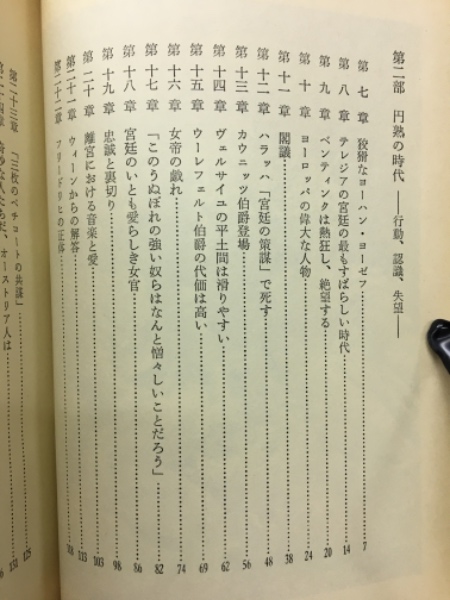 第二部 円熟の時代 ――行動、認識、失望――
第七章 狡猾なヨーハン・ヨーゼフ 7
第八章 テレジアの宮廷の最もすばらしい時代 14
第九章 ベンティンクは熱狂し、絶望する 20
第十章 ヨーロッパの偉大な人物 24
第十一章 閣議 38
第十二章 ハラッハ「宮廷の策謀」で死す 48
第十三章 カウニッツ伯爵登場 56
第十四章 ヴェルサイユの平土間は滑りやすい 62
第十五章 ウーレフェルト伯爵の代価は高い 69
第十六章 女帝の戯れ 74
第十七章 「このうぬぼれの強い奴らはなんと憎々しいことだろう」 82
第十八章 宮廷のいとも愛らしき女官 86
第十九章 忠誠と裏切り 98
第二十章 離宮における音楽と愛 103
第二十一章 ウィーンからの解答 113
第二十二章 フリードリヒの正体
第二十三章 「三枚のペチコートの共謀」 125
第二十四章 人たちだ、オーストリア人は 131